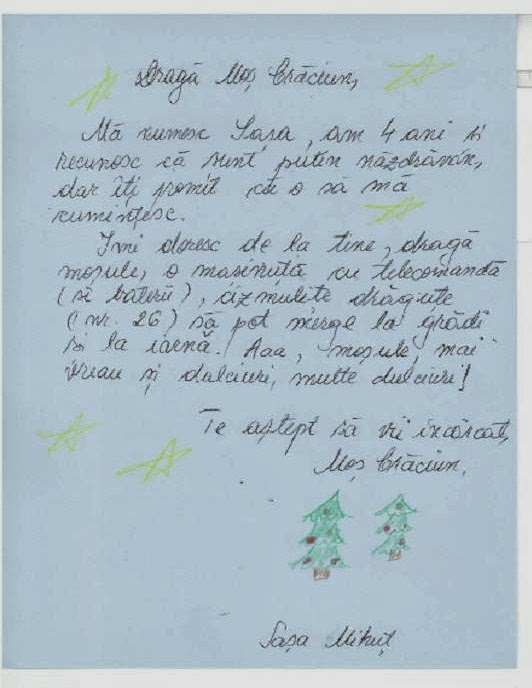 Dragă Moș Crăciun,
Mă numesc Sașa, am 4 ani si
recunosc că sunt puțin năzdrăvan,
dar îți promit că o să mă
cumințesc.
Imi doresc de la tine, dragă
moșule, o masinuță cu telecomandă
(si baterii), cizmulițe drăguțe
(nr. 26) să pot merge la grădi
si la iarnă. Aaa, moșule, mai
vreau și dulciuri, multe dulciuri!
Te aștept să vii încărcat,
Moș Crăciun.
Sașa Mihuț